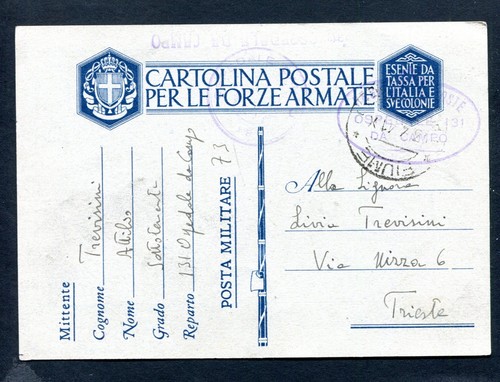 CARTOLINA POSTALE
PER LE FORZE ARMATE
ESENTE DA
TASSA PER
L'ITALIA E
SVE COLONIE
131
DA CAMPO
FIUME
Mittente
Cognome Trevisini
Nome Attilio
Grado Sottotenente
Reparto 131 Ospedale da Camp
POSTA MILITARE 73
Alla Signora
Livia Trevisini
Via Nizza 6
Trieste